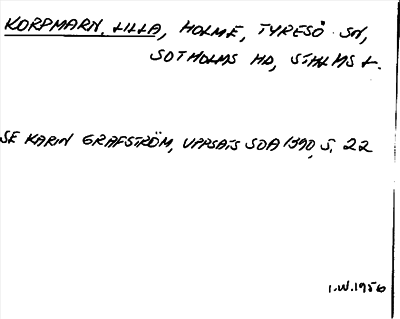 KORPMARN, LILLA, HOLME, TYRESÖ SN,
SOTHOLMS HD, STHLMS L.
SE KARIN GRAFSTRÖM, UPPSATS SOA 1970, S. 22
I.W.1956